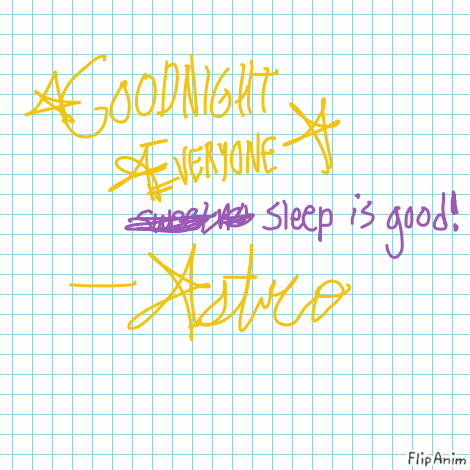 GOODNIGHT
EVERYONE
sleep is good!
— Astro
FlipAnim